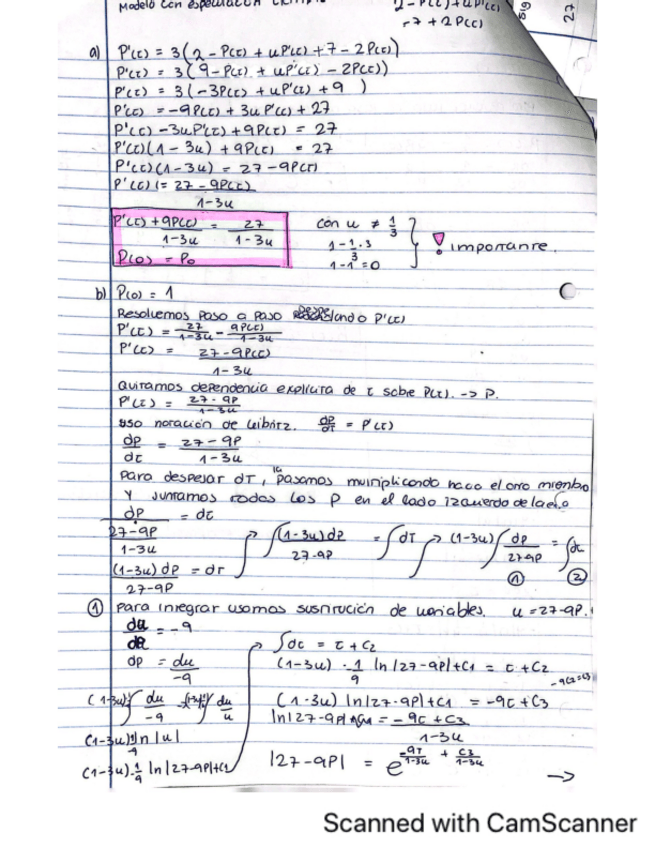 Modelo con especulación
2 - P(t) + uP'(t)
-7 + 2P(t)
27
a) P'(t) = 3(2 - P(t) + uP'(t) + 7 - 2P(t))
P'(t) = 3(9 - P(t) + uP'(t) - 2P(t))
P'(t) = 3(-3P(t) + uP'(t) + 9 )
P'(t) = -9P(t) + 3uP'(t) + 27
P'(t) - 3uP'(t) + 9P(t) = 27
P'(t)(1 - 3u) + 9P(t) = 27
P'(t)(1-3u) = 27 - 9P(t)
P'(t) (= 27 - 9P(t)
1-3u
P'(t) + 9P(t) = 27
1-3u 1-3u
P(0) = P0
con u ≠ 1/3
1 - 1/3 · 3
1-1=0
! importante.
b) P(0) = 1
Resolvemos paso a paso despejando P'(t)
P'(t) = 27/1-3u - 9P(t)/1-3u
P'(t) = 27-9P(t)
1-3u
Quitamos dependencia explicita de t sobre P(t). -> P.
P'(t) = 27-9P/1-3u
Uso notación de Leibniz. dp/dt = P'(t)
dp/dt = 27-9P
1-3u
Para despejar dt, la pasamos multiplicando hacia el otro miembro
Y juntamos todas las P en el lado izquierdo de la
dp = dt
27-9P
1-3u
(1-3u)dp = dt
27-9P
∫(1-3u)dp = ∫dt
27-9P
(1-3u)∫dp = ∫dt
27-9P
① ②
① Para integrar usamos sustitución de variables. u = 27-9P.
du = -9
dP
dp = du
-9
(1-3u)∫ du ∫ du
-9 u
(1-3u) ln|u|
(1-3u) · 1/9 ln|27-9P|+C1
∫dt = t + C2
(1-3u) · 1/9 ln|27-9P|+C1 = t + C2
-9C2=C3
(1-3u) ln|27-9P|+C1 = -9t + C3
ln|27-9P| +C1 = -9t + C3
1-3u
|27-9P| = e^(-9t/1-3u + C3/1-3u)
->
Scanned with CamScanner